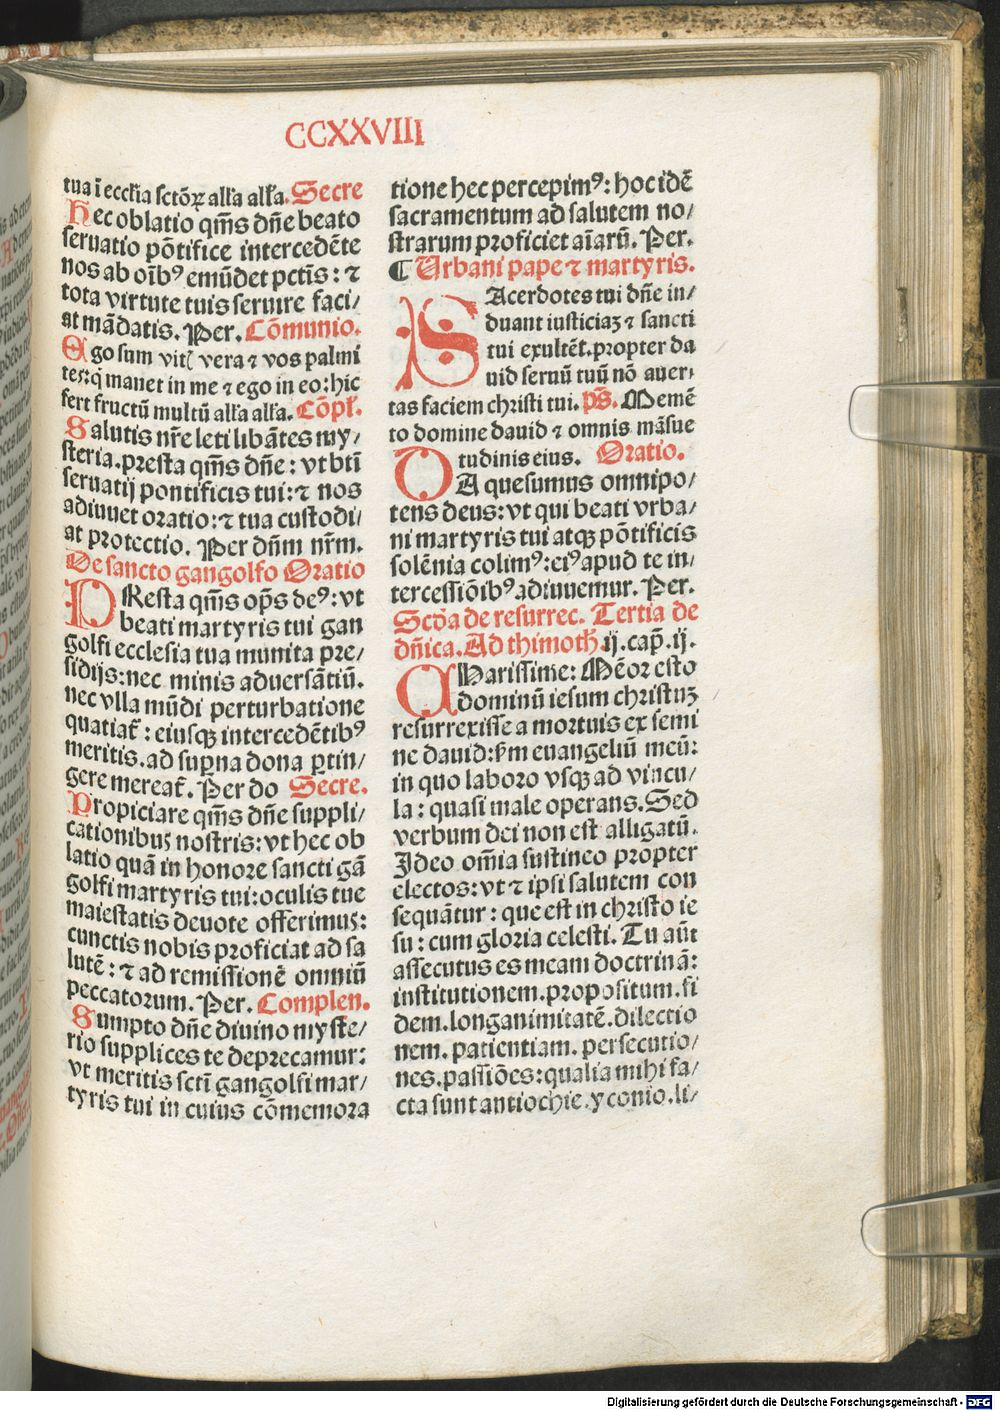 CCXXVIII
tua ī eccłia sctōꝝ ałła ałła. Secre
Hec oblatio qm̄s dn̄e beato
seruatio pōtifice intercedēte
nos ab oīb⁹ emūdet pctīs: ⁊
tota virtute tuis seruire faci/
at mādatis. Per. Cōmunio.
Ego sum vitꝭ vera ⁊ vos palmi
tes: q̇ manet in me ⁊ ego in eo: hic
fert fructū multū ałła ałła. Cōpł.
Salutis nr̄e leti libātes my/
steria. presta qm̄s dn̄e: vt btī
seruatij pontificis tui: ⁊ nos
adiuuet oratio: ⁊ tua custodi/
at protectio. Per dn̄m nr̄m.
De sancto gangolfo Oratio
PResta qm̄s op̄s de⁹: vt
beati martyris tui gan
golfi ecclesia tua munita pre/
sidijs: nec minis aduersātiū.
nec vlla mūdi perturbatione
quatiat᷑: eiusqꝫ intercedētib⁹
meritis. ad suꝑna dona ꝑtin/
gere mereat᷑. Per do Secre.
Propiciare qm̄s dn̄e suppli/
cationibus nostris: vt hec ob
latio quā in honore sancti gā
golfi martyris tui: oculis tue
maiestatis deuote offerimus:
cunctis nobis proficiat ad sa
lutē: ⁊ ad remissionē omniū
peccatorum. Per. Complen.
Sumpto dn̄e diuino myste/
rio supplices te deprecamur:
vt meritis sctī gangolfi mar/
tyris tui in cuius cōmemora
tione hec percepim⁹: hoc idē
sacramentum ad salutem no/
strarum proficiet aīarū. Per.
¶ Urbani pape ⁊ martyris.
SAcerdotes tui dn̄e in/
duant iusticiaꝫ ⁊ sancti
tui exultēt. propter da
uid seruū tuū nō auer/
tas faciem christi tui. pš. Memē
to domine dauid ⁊ omnis māsue
tudinis eius. Oratio.
DA quesumus omnipo/
tens deus: vt qui beati vrba/
ni martyris tui atqꝫ pōtificis
solēnia colim⁹: ei⁹ apud te in/
tercessiōib⁹ adiuuemur. Per.
Scďa de resurrec. Tertia de
dn̄ica. Ad thimoth̄ ij. cap̄. ij.
CHarissime: Mēor esto
dominū iesum christuꝫ
resurrexisse a mortuis ex semi
ne dauid: ẜm euangeliū meū:
in quo laboro vsqꝫ ad vincu/
la: quasi male operans. Sed
verbum dei non est alligatū.
Ideo omīa sustineo propter
electos: vt ⁊ ipsi salutem con
sequātur: que est in christo ie
su: cum gloria celesti. Tu aūt
assecutus es meam doctrinā:
institutionem. propositum. fi
dem. longanimitatē. dilectio
nem. patientiam. persecutio/
nes. passiōes: qualia mihi fa/
cta sunt antiochie. yconio. li/
Digitalisierung gefördert durch die Deutsche Forschungsgemeinschaft - DFG